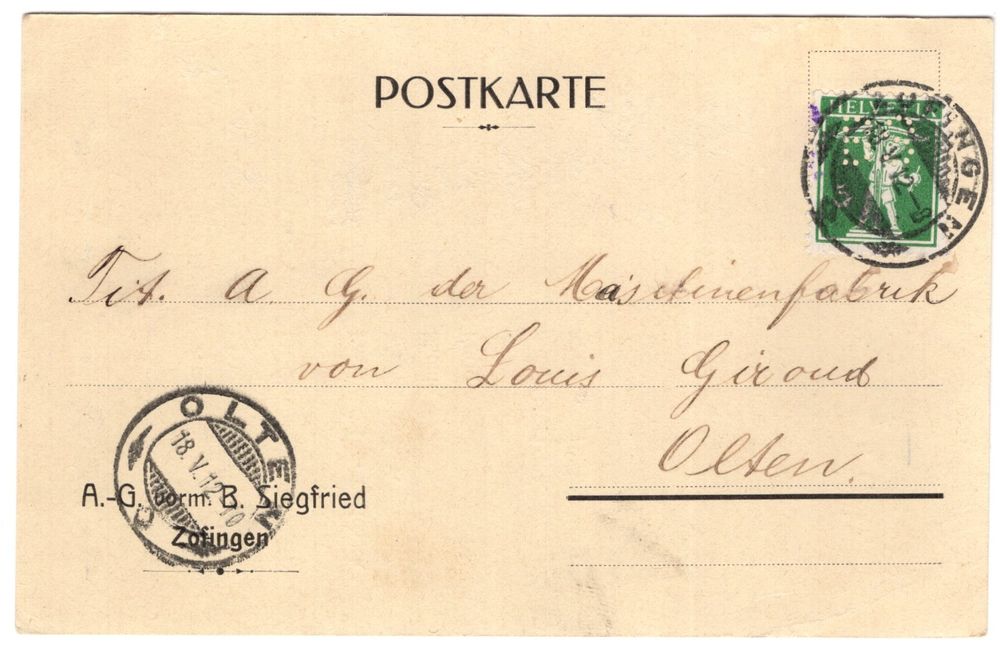 POSTKARTE
HELVETIA
18.V.12.-8
Tit. A. G. der Maschinenfabrik
von Louis Giroud
Olten.
OLTEN
18.V.12.
A.-G. vorm. B. Siegfried
Zofingen